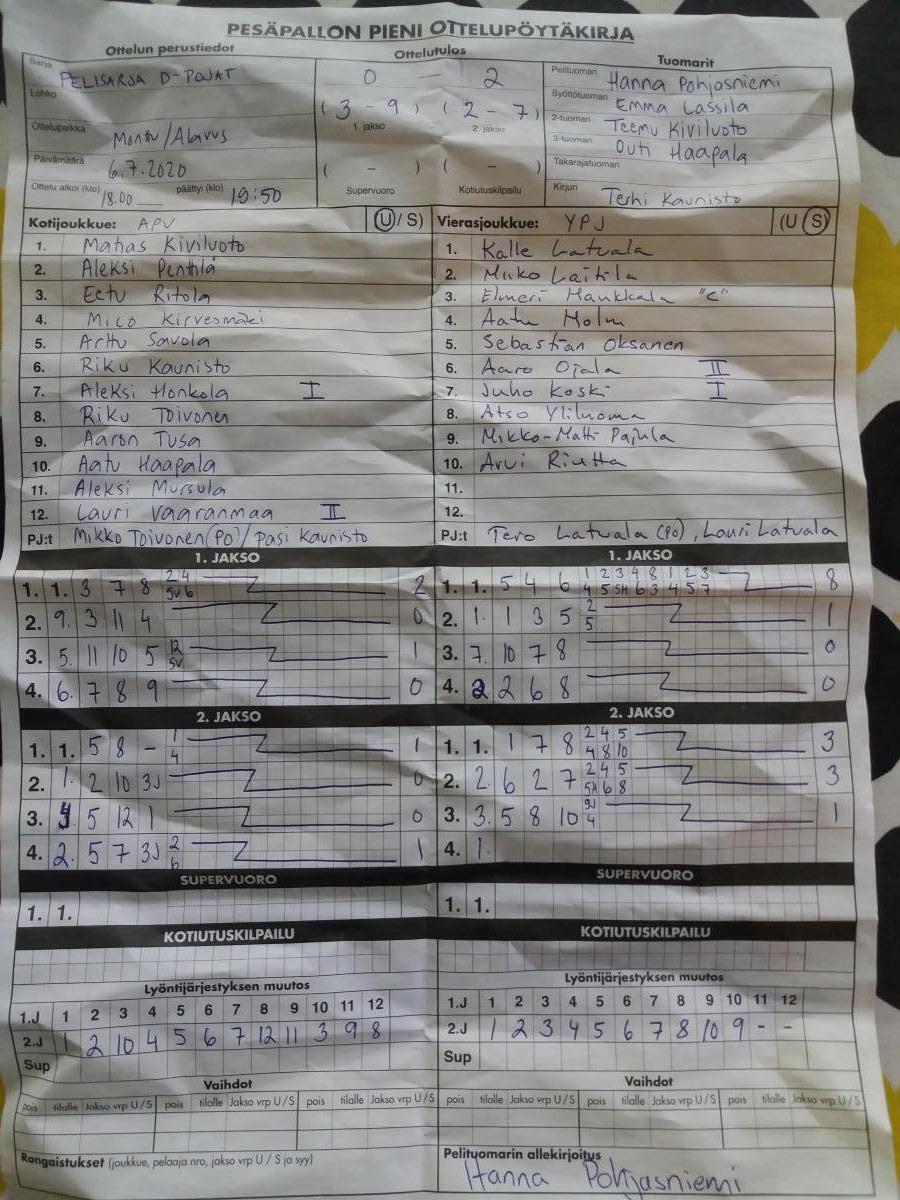 PESÄPALLON PIENI OTTELUPÖYTÄKIRJA
Ottelun perustiedot
Ottelutulos
Tuomarit
Sarja PELISARJA D-POJAT
0 - 2
Pelituomari Hanna Pohjasniemi
Lohko
( 3 - 9 ) ( 2 - 7 )
Syöttötuomari Emma Lassila
1. jakso 2. jakso
2-tuomari Teemu Kiviluoto
Ottelupaikka Montu/Alavus
3-tuomari Outi Haapala
Päivämäärä 6.7.2020
( - ) ( - )
Takarajatuomari
Ottelu alkoi (klo) 18.00 päättyi (klo) 19:50
Supervuoro Kotiutuskilpailu
Kirjuri Terhi Kaunisto
Kotijoukkue: APV (U/S)
Vierasjoukkue: YPJ (U S)
1. Matias Kiviluoto
2. Aleksi Penttilä
3. Eetu Ritola
4. Mico Kirvesmäki
5. Arttu Savola
6. Riku Kaunisto
7. Aleksi Honkola I
8. Riku Toivonen
9. Aaron Tusa
10. Aatu Haapala
11. Aleksi Mursula
12. Lauri Vaaranmaa II
PJ:t Mikko Toivonen (PO) / Pasi Kaunisto
1. Kalle Latvala
2. Miiko Laitila
3. Elmeri Haukkala "C"
4. Aatu Holm
5. Sebastian Oksanen
6. Aaro Ojala II
7. Juho Koski I
8. Atso Yliluoma
9. Mikko-Matti Pajula
10. Arvi Riutta
11.
12.
PJ:t Tero Latvala (PO), Lauri Latvala
1. JAKSO
1. 1. 3 7 8 2 4 2
5v 6
2. 9. 3 11 4 0
3. 5. 11 10 5 12 1
5v
4. 6. 7 8 9 0
1. JAKSO
1. 1. 5 4 6 1 2 3 4 8 1 2 3 8
4 5 5H 6 3 4 5 7
2. 1. 1 3 5 2 1
5
3. 7. 10 7 8 0
4. 2 2 6 8 0
2. JAKSO
1. 1. 5 8 - 1 1
4
2. 1. 2 10 3J 0
3. 4. 5 12 1 0
4. 2. 5 7 3J 2 1
6
2. JAKSO
1. 1. 1 7 8 2 4 5 3
4 8 10
2. 2. 6 2 7 2 4 5 3
5H 6 8
3. 3. 5 8 10 9J 1
4
4. 1.
SUPERVUORO
1. 1.
SUPERVUORO
1. 1.
KOTIUTUSKILPAILU
KOTIUTUSKILPAILU
Lyöntijärjestyksen muutos
1.J 1 2 3 4 5 6 7 8 9 10 11 12
2.J 1 2 10 4 5 6 7 12 11 3 9 8
Sup
Lyöntijärjestyksen muutos
1.J 1 2 3 4 5 6 7 8 9 10 11 12
2.J 1 2 3 4 5 6 7 8 10 9 - -
Sup
Vaihdot
pois tilalle Jakso vrp U/S pois tilalle Jakso vrp U/S pois tilalle Jakso vrp U/S
Vaihdot
pois tilalle Jakso vrp U/S pois tilalle Jakso vrp U/S pois tilalle Jakso vrp U/S
Rangaistukset (joukkue, pelaaja nro, jakso vrp U / S ja syy)
Pelituomarin allekirjoitus
Hanna Pohjasniemi